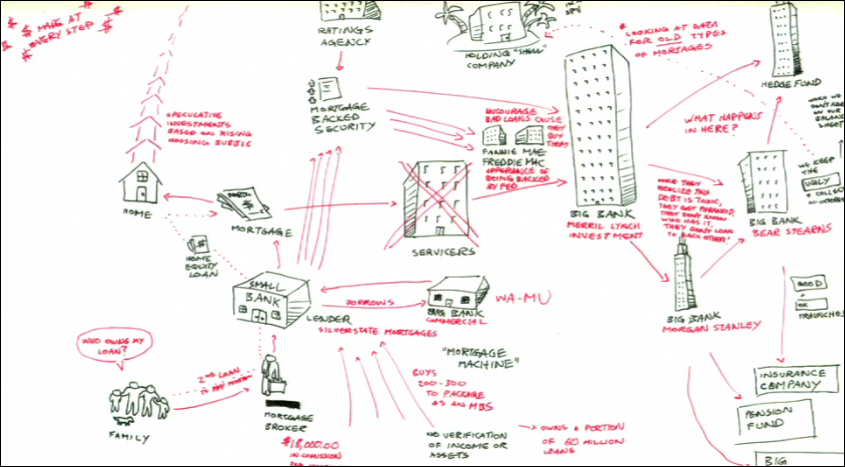 $ MADE AT
EVERY STEP $
RATINGS
AGENCY
HOLDING "SHELL"
COMPANY
LOOKING AT DATA
FOR OLD TYPES
OF MORTAGES
HEDGE FUND
SPECULATIVE
INVESTMENTS
BASED ON RISING
HOUSING BUBBLE
MORTGAGE
BACKED
SECURITY
ENCOURAGE
BAD LOANS CAUSE
THEY
BUY
THEM
FANNIE MAE
FREDDIE MAC
APPEARANCE OF
BEING BACKED
BY FED.
WHAT HAPPENS
IN HERE?
WHEN WE
DON'T
ON OUR
BALANCE
SHEET
WE KEEP
THE
UGLY
& COLLECT
ONCE THEY
REALIZE THIS
DEBT IS TOXIC,
THEY GET PARANOID,
THEY DON'T KNOW
WHO HAS IT,
THEY DON'T LOAN
TO EACH OTHER"
HOME
MORTGAGE
SERVICERS
BIG BANK
MERRIL LYNCH
INVESTMENT
BIG BANK
BEAR STEARNS
HOME
EQUITY
LOAN
SMALL
BANK
LENDER
SILVERSTATE MORTGAGES
BORROWS
BIG BANK
COMMERCIAL
WA-MU
BIG BANK
MORGAN STANLEY
GOOD
OK
TRAUNCHES
WHO OWNS MY
LOAN?
2ND LOAN
TO PAY
"MORTGAGE
MACHINE"
BUYS
200-300
TO PACKAGE
AS AN MBS
INSURANCE
COMPANY
PENSION
FUND
BIG
FAMILY
MORTGAGE
BROKER
$18,000.00
IN COMISSION
NO VERIFICATION
OF INCOME OR
ASSETS
OWNS A PORTION
OF 60 MILLION
LOANS